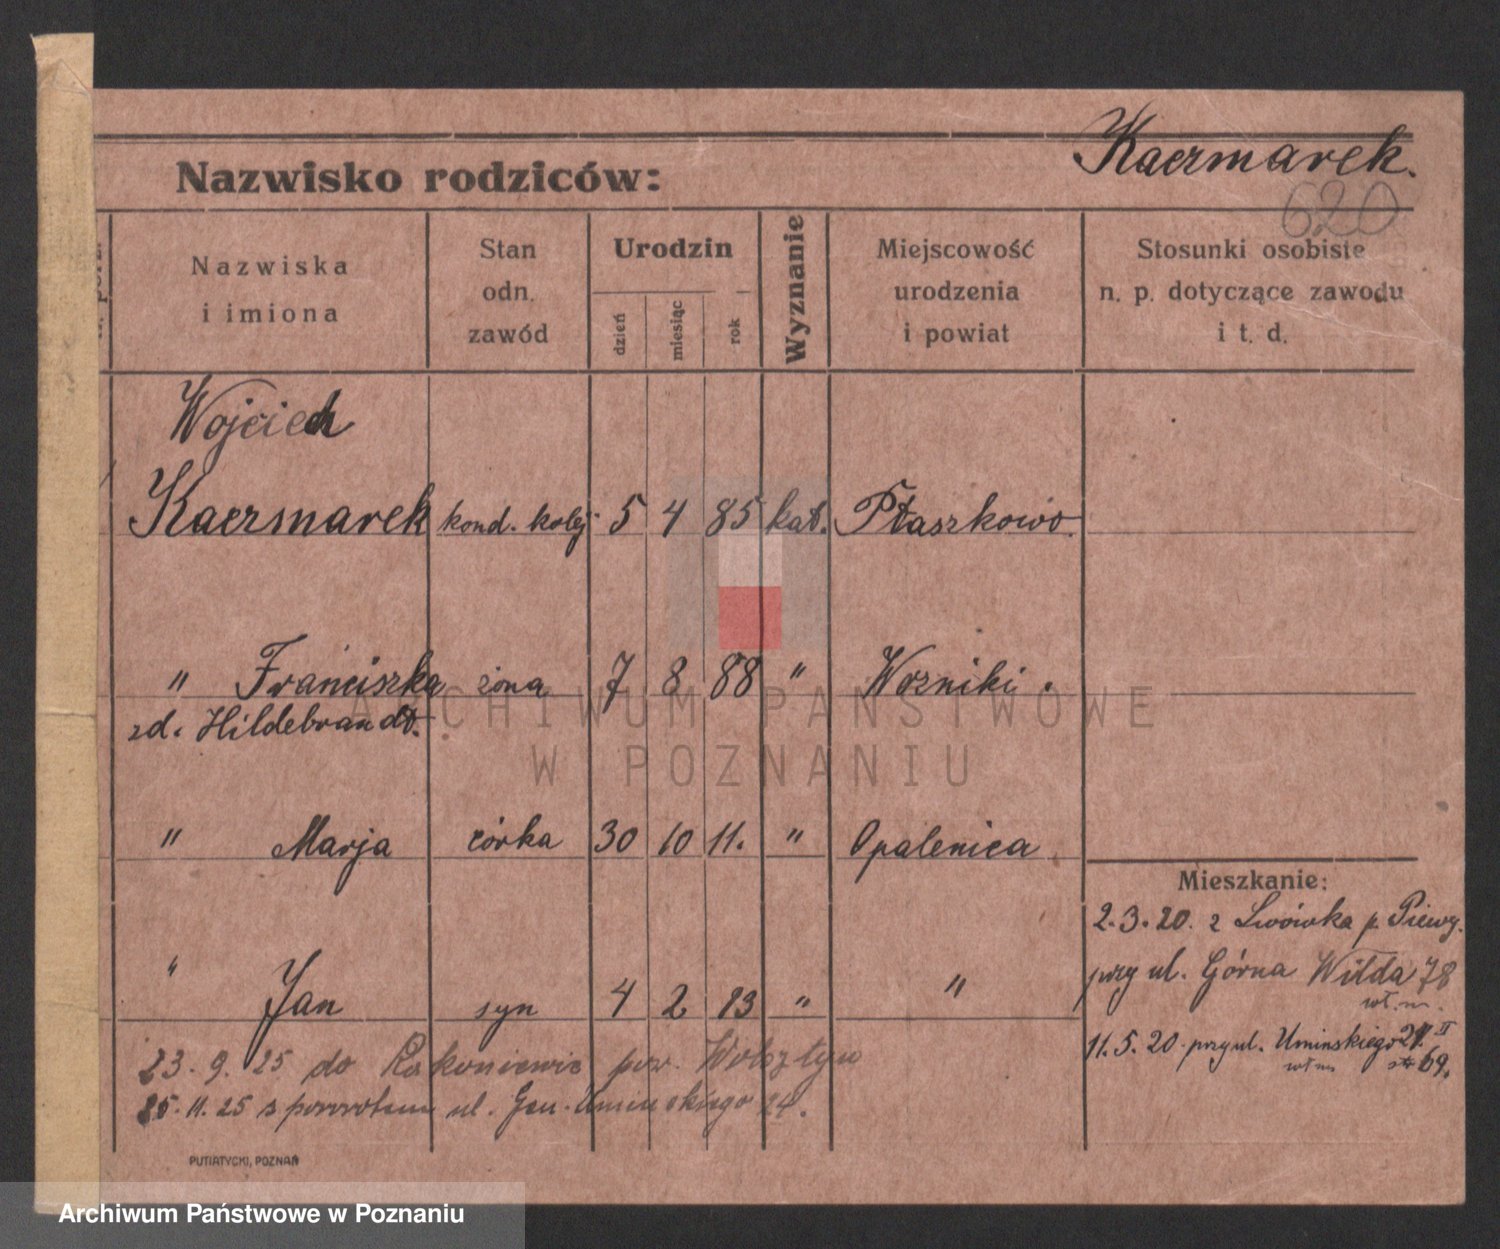 Kaczmarek.
Nazwisko rodziców:
620
Nazwiska i imiona
Stan odn. zawód
Urodzin
dzień
miesiąc
rok
Wyznanie
Miejscowość urodzenia i powiat
Stosunki osobiste n. p. dotyczące zawodu i t. d.
Wojciech
Kaczmarek kond. kolej. 5 4 85 kat. Ptaszkowo.
" Franciszka żona 7 8 88 " Wozniki.
zd. Hildebrandt.
" Marja córka 30 10 11. " Opalenica
Mieszkanie:
2.3.20. z Lwówka p.
przy ul. Górna Wilda 78
" Jan syn 4 2 13 " "
11.5.20 przy ul. Umińskiego
69.
23.9.25 do Rakoniewic pow. Wolsztyn
25.11.25 z powrotem ul. Gen. Umińskiego 24.
PUTIATYCKI, POZNAŃ
ARCHIWUM PAŃSTWOWE
W POZNANIU
Archiwum Państwowe w Poznaniu